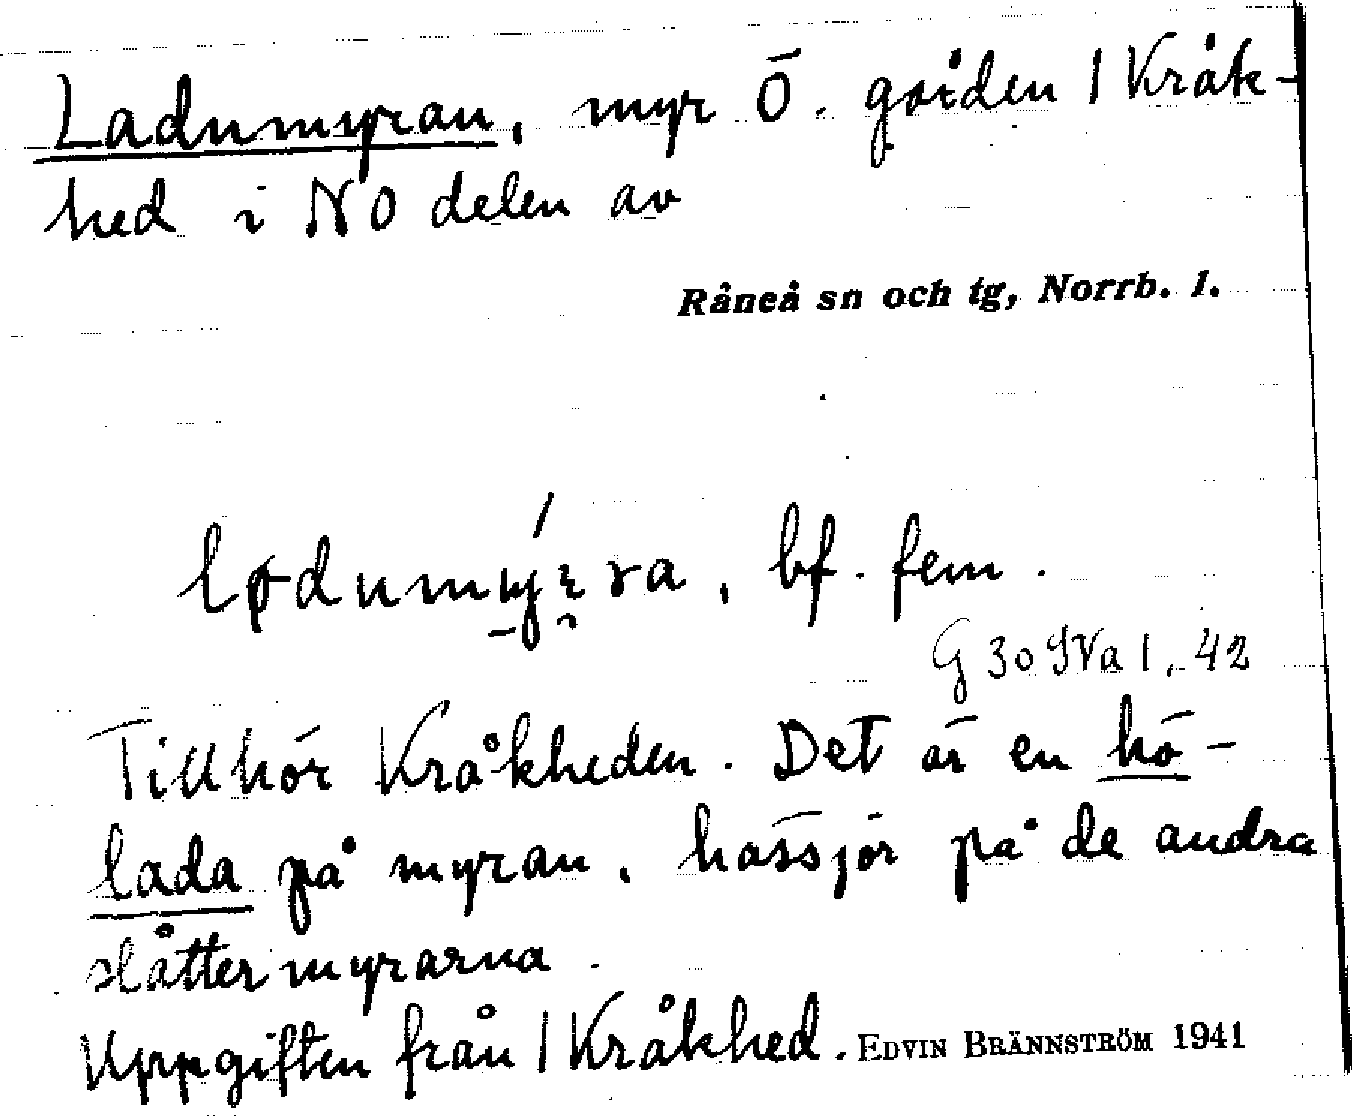 Ladumyran, myr Ö. gården 1 Kråk-
hed i NO delen av
Råneå sn och tg, Norrb. l.
bf. fem.
G 30 SVa 1, 42
Tillhör Kråkheden. Det är en hö-
lada på myran, hässjor på de andra
slåttermyrarna.
Uppgiften från 1 Kråkhed. EDVIN BRÄNNSTRÖM 1941